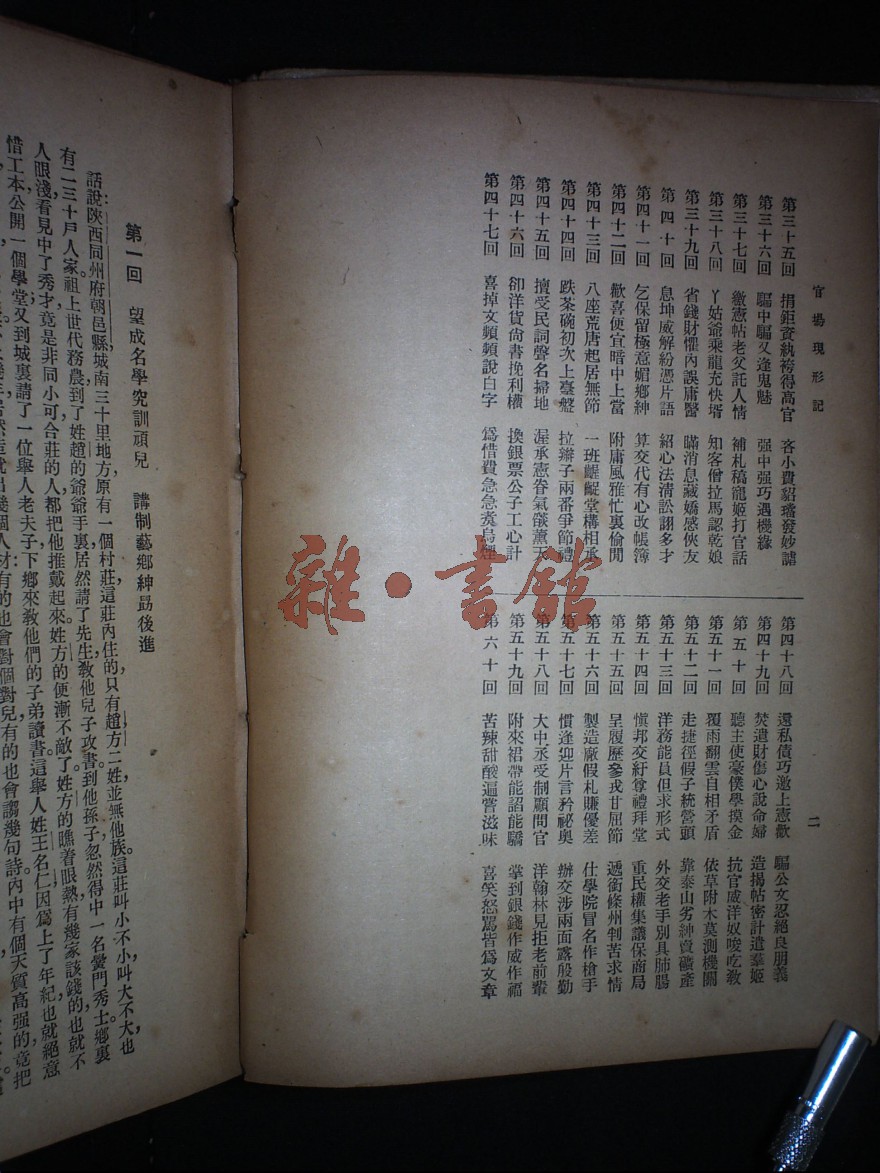 官場現形記
二
第三十五回 捐鉅資紈袴得高官 吝小費貂璫發妙謔
第三十六回 騙中騙又逢鬼魅 强中强巧遇機緣
第三十七回 繳憲帖老父託人情 補札稿寵姬打官話
第三十八回 丫姑爺乘龍充快壻 知客僧拉馬認乾娘
第三十九回 省錢財懼內誤庸醫 瞞消息藏嬌感俠友
第四十回 息坤威解紛憑片語 紹心法清訟詡多才
第四十一回 乞保留極意媚鄉紳 算交代有心改帳簿
第四十二回 歡喜便宜暗中上當 附庸風雅忙裏偷閒
第四十三回 八座荒唐起居無節 一班齷齪堂構相承
第四十四回 跌茶碗初次上臺盤 拉辮子兩番爭節禮
第四十五回 擅受民詞聲名掃地 渥承憲眷氣燄薰天
第四十六回 卻洋貨尙書挽利權 換銀票公子工心計
第四十七回 喜掉文頻頻說白字 爲惜費急急煑烏煙
第四十八回 還私債巧邀上憲歡 騙公文忍絕良朋義
第四十九回 焚遺財傷心說命婦 造揭帖密計遣羣姬
第五十回 聽主使豪僕學摸金 抗官威洋奴唆吃教
第五十一回 覆雨翻雲自相矛盾 依草附木莫測機關
第五十二回 走捷徑假子統營頭 靠泰山劣紳賣礦產
第五十三回 洋務能員但求形式 外交老手別具肺腸
第五十四回 愼邦交紆尊禮拜堂 重民權集議保商局
第五十五回 呈履歷參戎甘屈節 遞銜條州判苦求情
第五十六回 製造廠假札賺優差 仕學院冒名作槍手
第五十七回 慣逢迎片言矜祕奧 辦交涉兩面露殷勤
第五十八回 大中丞受制顧問官 洋翰林見拒老前輩
第五十九回 附來裙帶能諂能驕 掌到銀錢作威作福
第六十回 苦辣甜酸遍嘗滋味 喜笑怒罵皆爲文章
雜·書館
第一回 望成名學究訓頑兒 講制藝鄉紳勗後進
話說陝西同州府朝邑縣城南三十里地方原有一個村莊這莊內住的只有趙方二姓並無他族。這莊叫小不小叫大不大也
有二三十戶人家祖上世代務農到了姓趙的爺爺手裏居然請了先生教他兒子攻書到他孫子忽然得中一名黌門秀士鄉裏
人眼淺看見中了秀才竟是非同小可合莊的人都把他推戴起來姓方的便漸不敵了。姓方的瞧着眼熱有幾家該錢的也就不
惜工本公開一個學堂又到城裏請了一位舉人老夫子下鄉來教他們的子弟讀書這舉人姓王名仁因爲上了年紀也就絕意
幾個人材有的也會對個對兒有的也會謅幾句詩內中有個天質高强的竟把